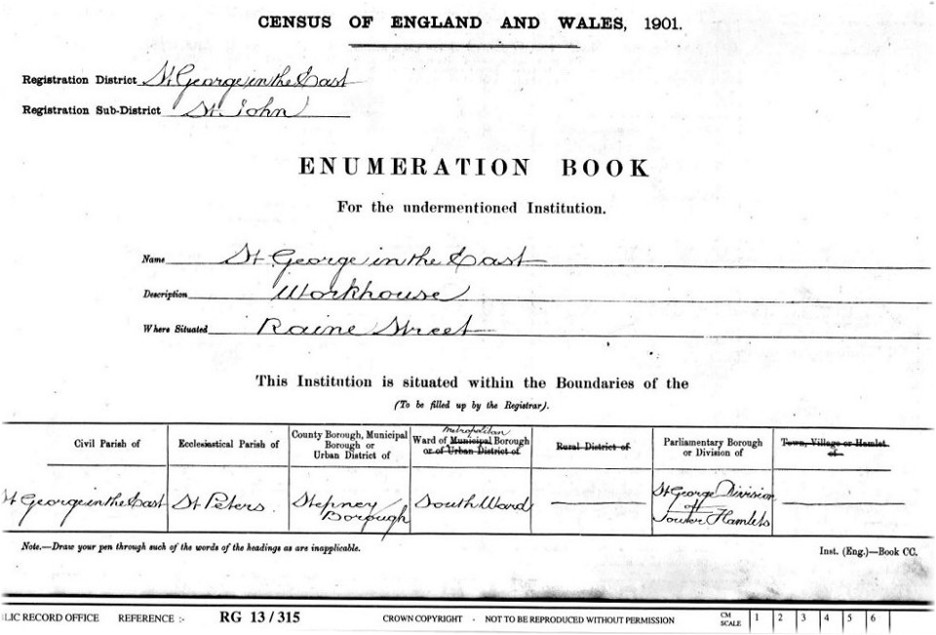 CENSUS OF ENGLAND AND WALES, 1901.
Registration District St George in the East
Registration Sub-District St John
ENUMERATION BOOK
For the undermentioned Institution.
Name St George in the East
Description Workhouse
Where Situated Raine Street
This Institution is situated within the Boundaries of the
(To be filled up by the Registrar).
Civil Parish of
Ecclesiastical Parish of
County Borough, Municipal
Borough or
Urban District of
Metropolitan
Ward of Municipal Borough
or of Urban District of
Rural District of
Parliamentary Borough
or Division of
Town, Village or Hamlet
of
St George in the East
St Peters.
Stepney
Borough
South Ward
St George Division
of
Tower Hamlets
Note.—Draw your pen through such of the words of the headings as are inapplicable.
Inst. (Eng.)—Book CC.
LIC RECORD OFFICE REFERENCE :- RG 13 / 315 CROWN COPYRIGHT - NOT TO BE REPRODUCED WITHOUT PERMISSION CM SCALE 1 2 3 4 5 6